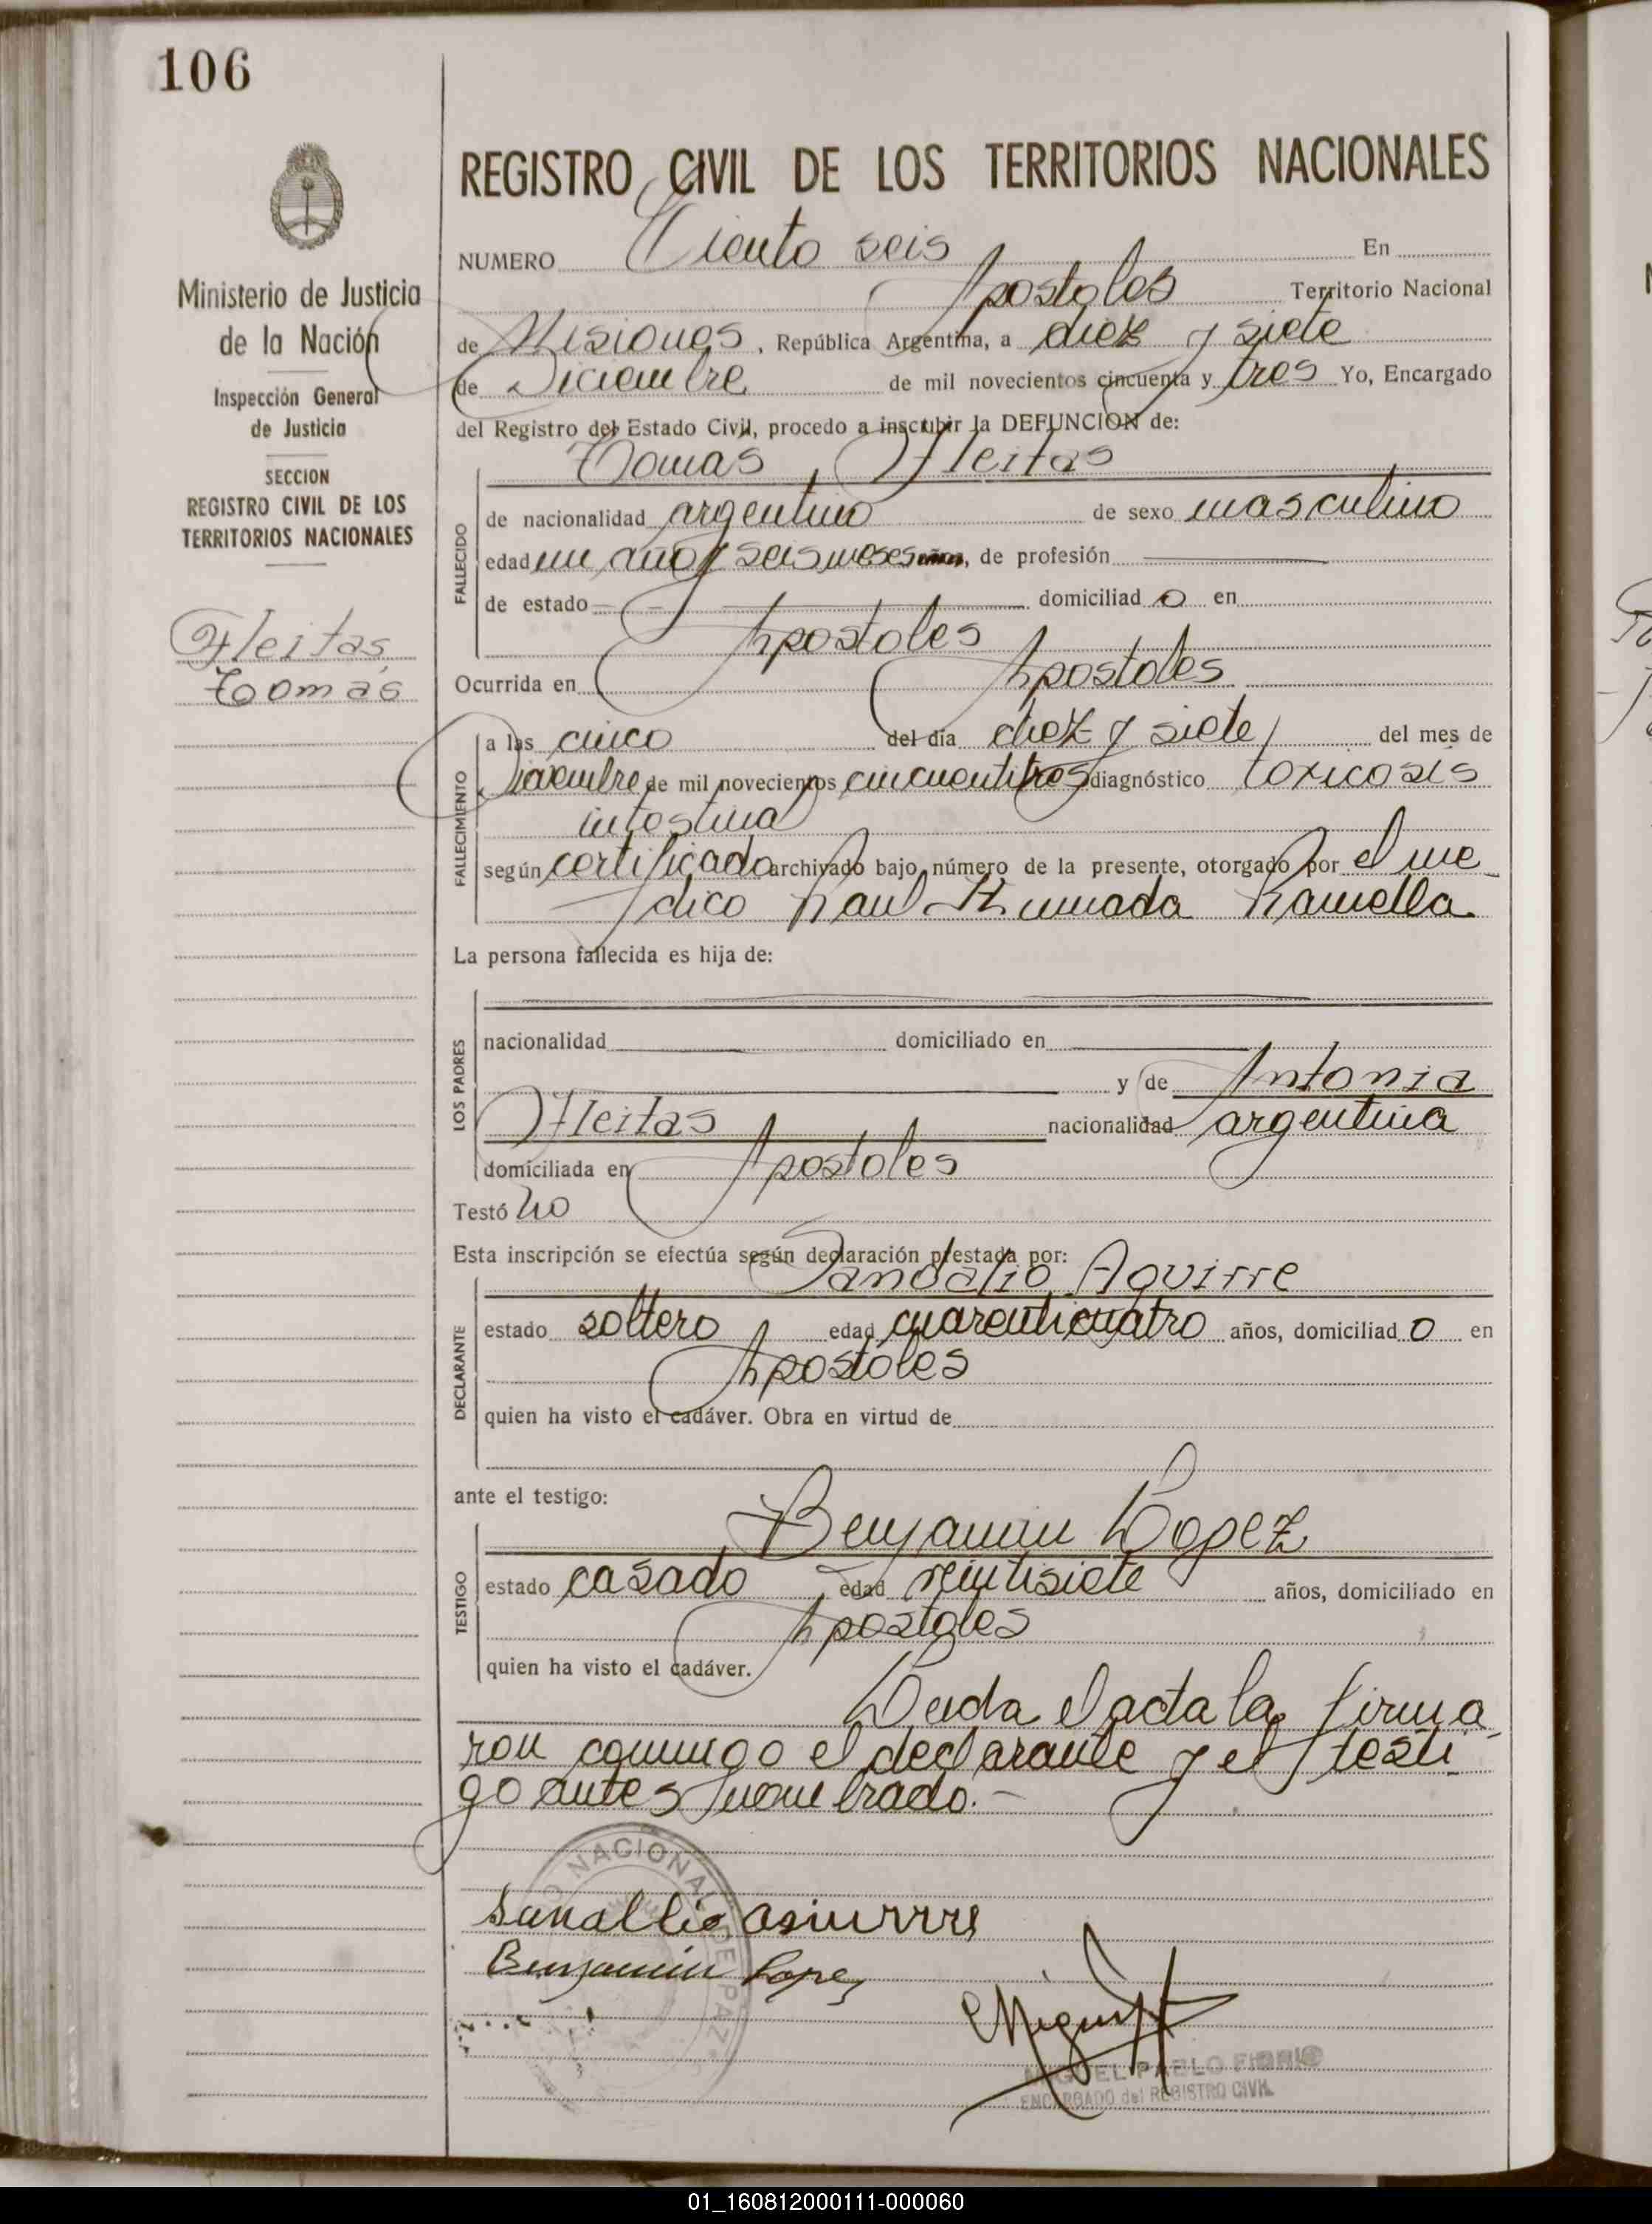 106
REGISTRO CIVIL DE LOS TERRITORIOS NACIONALES
Ministerio de Justicia
de la Nación
Inspección General
de Justicia
SECCION
REGISTRO CIVIL DE LOS
TERRITORIOS NACIONALES
Fleitas
Tomás
NUMERO Ciento seis En
Apostoles Territorio Nacional
de Misiones, República Argentina, a diez y siete
de Diciembre de mil novecientos cincuenta y tres Yo, Encargado
del Registro del Estado Civil, procedo a inscribir la DEFUNCION de:
Tomas Fleitas
FALLECIDO
de nacionalidad argentino de sexo masculino
edad un año y seis meses años, de profesión
de estado domiciliado en
Apostoles
Ocurrida en Apostoles
FALLECIMIENTO
a las cinco del día diez y siete del mes de
Diciembre de mil novecientos cincuentitres diagnóstico toxicosis
intestinal
según certificado archivado bajo número de la presente, otorgado por el me-
dico Raul Ahumada Ramella
La persona fallecida es hija de:
LOS PADRES
nacionalidad domiciliado en
y de Antonia
Fleitas nacionalidad argentina
domiciliada en Apostoles
Testó no
Esta inscripción se efectúa según declaración prestada por:
Sandalio Aguirre
DECLARANTE
estado soltero edad cuarenticuatro años, domiciliado en
Apostoles
quien ha visto el cadáver. Obra en virtud de
ante el testigo:
Benjamin Lopez
TESTIGO
estado casado edad veintisiete años, domiciliado en
Apostoles
quien ha visto el cadáver.
Leida el acta la firma-
ron conmigo el declarante y el testi-
go antes nombrado.-
NACIONAL DE PAZ
Benjamin Lopez
MIGUEL PABLO
ENCARGADO del REGISTRO CIVIL
01_160812000111-000060